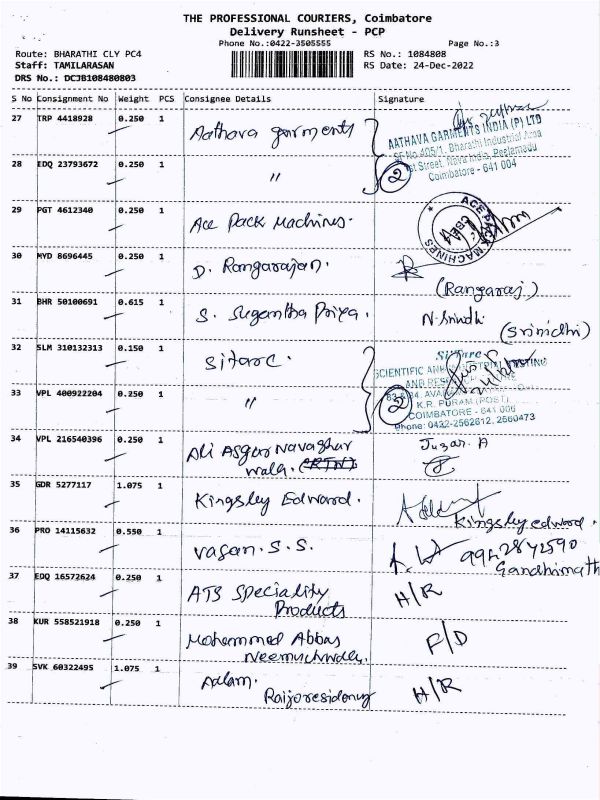 THE PROFESSIONAL COURIERS, Coimbatore
Delivery Runsheet - PCP
Phone No.:0422-3505555 Page No.:3
Route: BHARATHI CLY PC4 RS No.: 1084808
Staff: TAMILARASAN RS Date: 24-Dec-2022
DRS No.: DCJB108480803
S No Consignment No Weight PCS Consignee Details Signature
27 TRP 4418928 0.250 1 Aathava garments
AATHAVA GARMENTS INDIA (P) LTD
SF No.405/1, Bharathi Industrial Area
1st Street, Nava India, Peelamedu
Coimbatore - 641 004
28 EDQ 23793672 0.250 1 〃 2
29 PGT 4612340 0.250 1 Ace Pack Machines. ACE PACK MACHINES CBE
30 MYD 8696445 0.250 1 D. Rangarajan.
(Rangaraj.)
31 BHR 50100691 0.615 1 S. Sugantha Priya. N. Srinidhi
(Srinidhi)
32 SLM 310132313 0.150 1 Sitarc. Si'Tarc
33 VPL 400922204 0.250 1 〃 2
K.R. PURAM (POST)
COIMBATORE - 641 006
Phone: 0422-2562612, 2560473
34 VPL 216540396 0.250 1 Ali Asgar Navaghar Juzar. A
wala. (RTN)
35 GDR 5277117 1.075 1 Kingsley Edward.
Kingsley edward.
36 PRO 14115632 0.550 1 Vasan. S.S.
Gandhimath
37 EDQ 16572624 0.250 1 ATS Speciality H/R
Products
38 KUR 558521918 0.250 1 Mohammed Abbas F/D
Neemuchwala.
39 SVK 60322495 1.075 1 Aalam. H/R